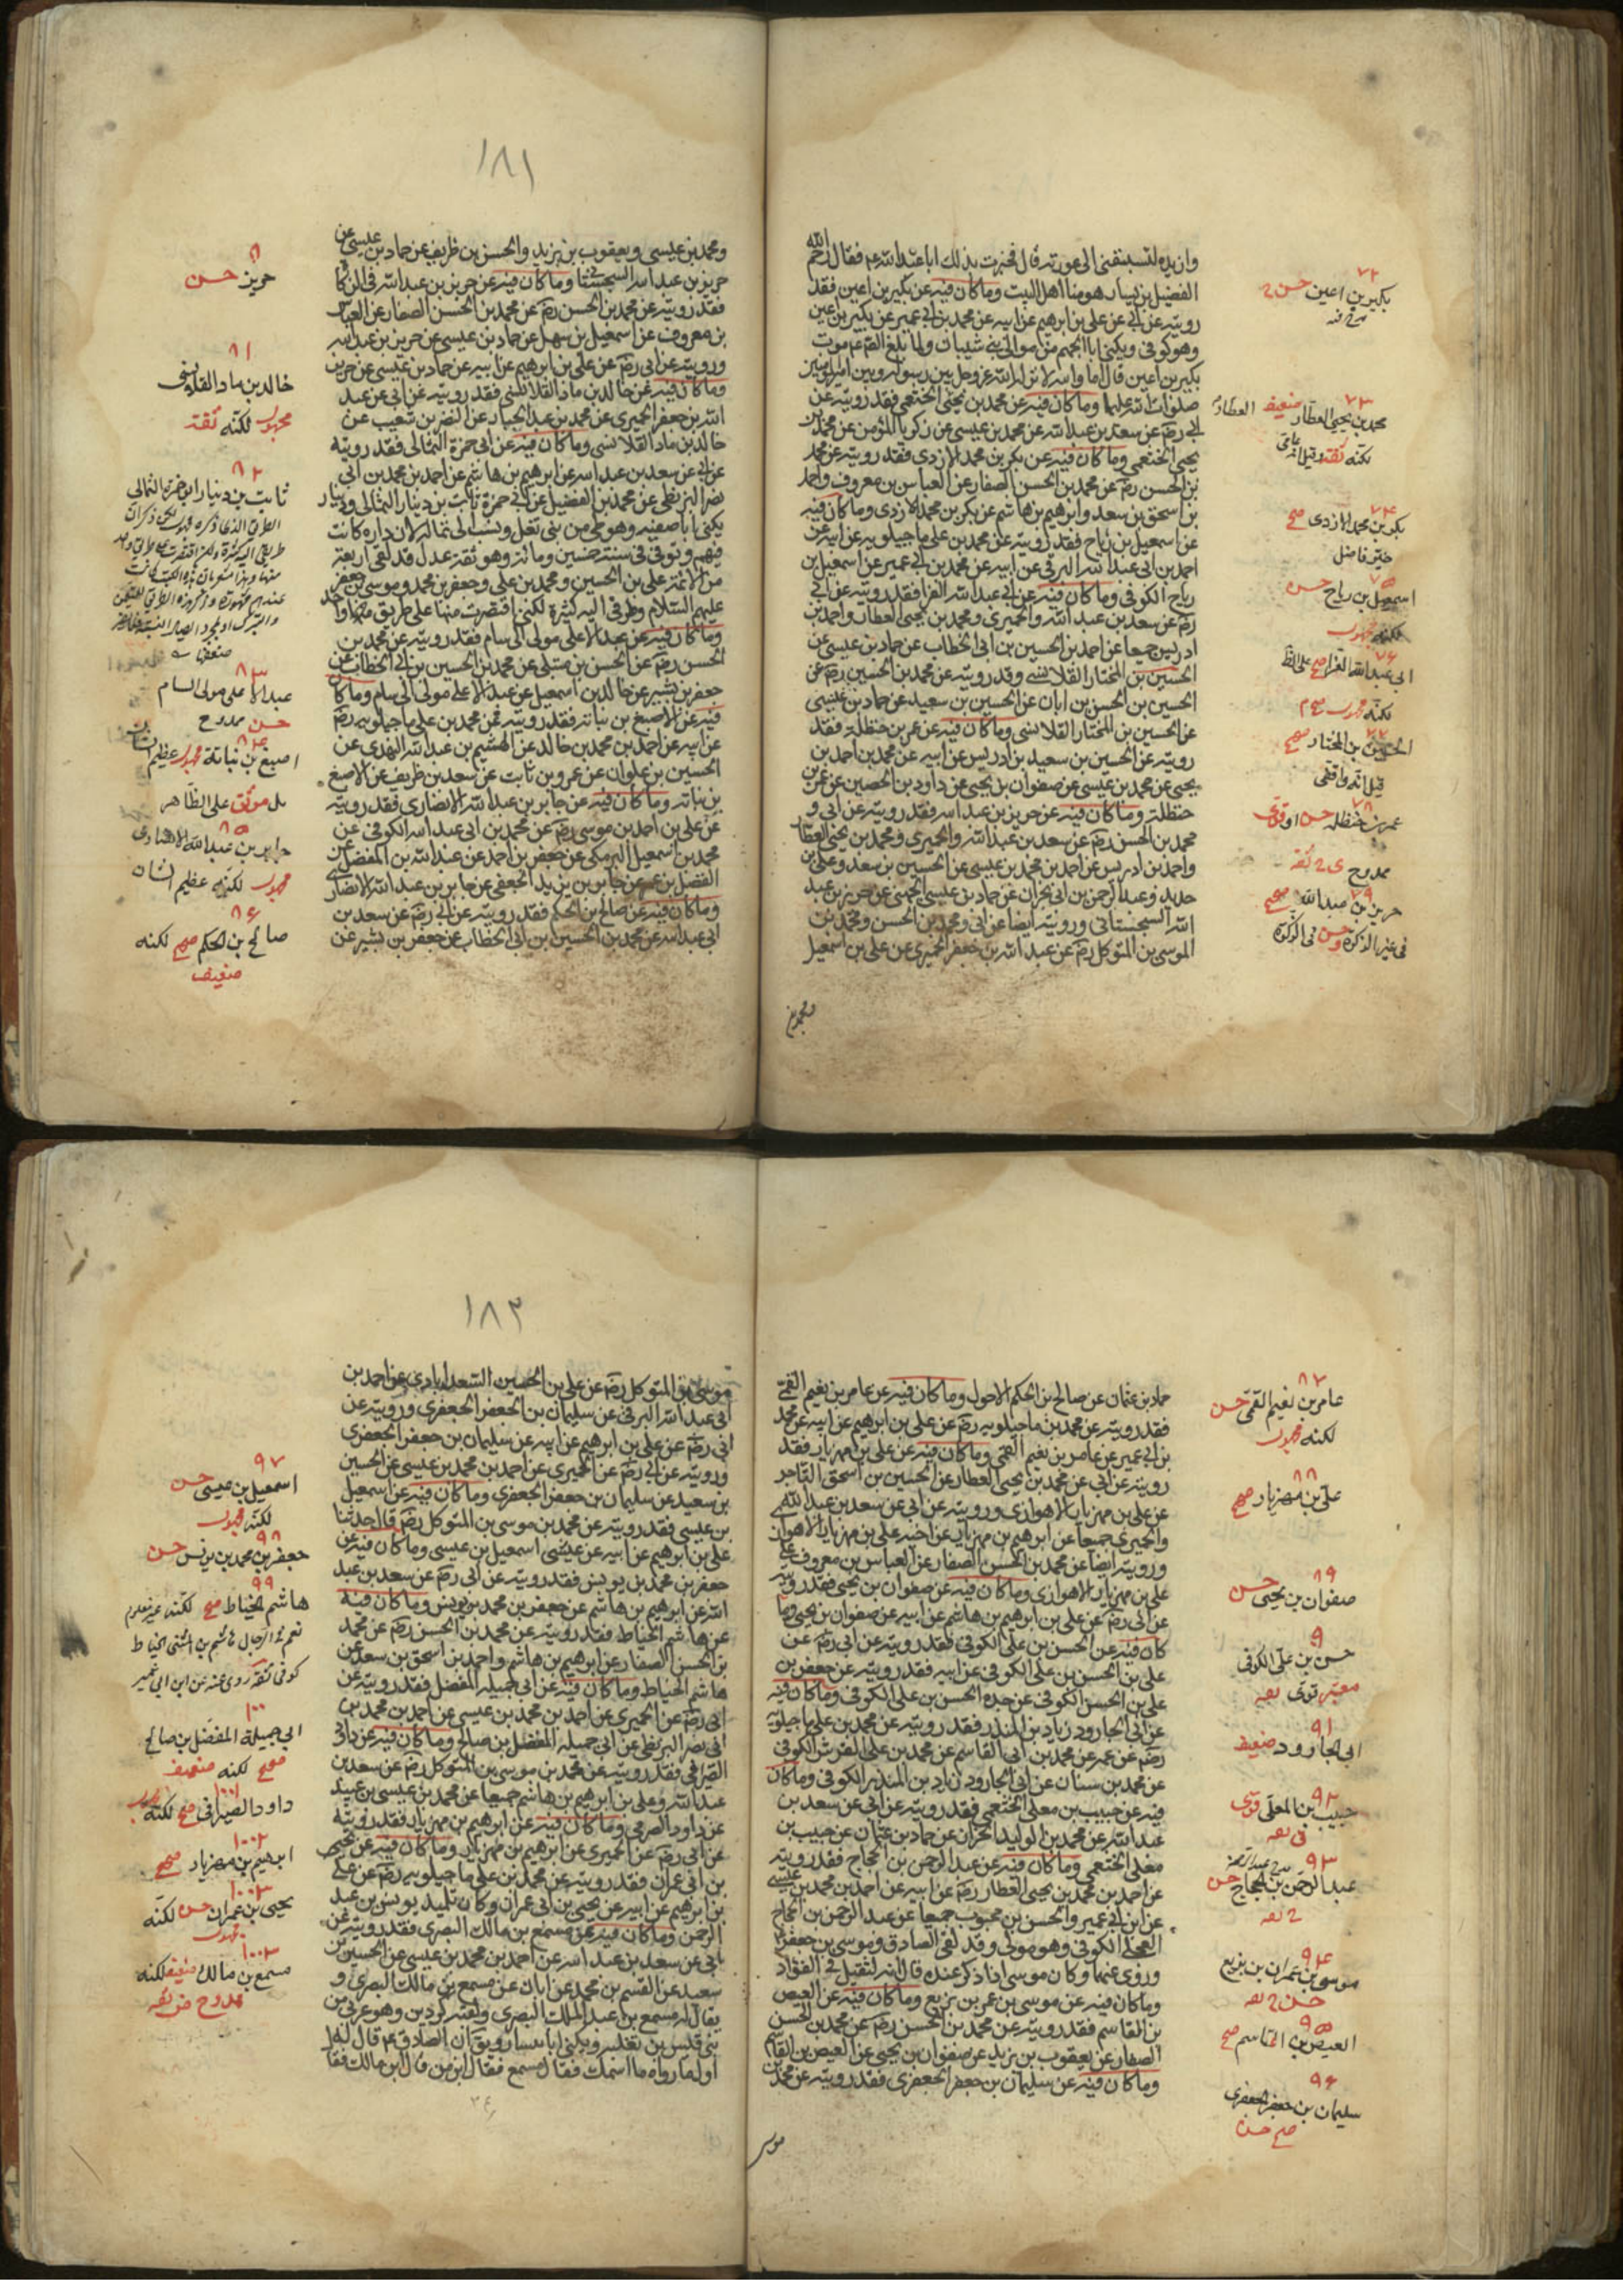 وان يده لتسبقنى الى عورته قال فخبرت بذلك ابا عبد الله ع فقال رحم الله
الفضيل بن يسار هو منا اهل البيت وما كان فيه عن بكير بن اعين فقد
رويته عن ابى عن على بن ابرهيم عن ابيه عن محمد بن ابى عمير عن بكير بن اعين
وهو كوفى ويكنى ابا الجهم من موالى بنى شيبان ولما بلغ الصادق ع موت
بكير بن اعين قال اما والله لقد انزله الله عز وجل بين رسوله وبين امير المؤمنين
صلوات الله عليهما وما كان فيه عن محمد بن يحيى الخثعمى فقد رويته عن
ابى رضه عن سعد بن عبد الله عن محمد بن عيسى عن زكريا المؤمن عن محمد بن
يحيى الخثعمى وما كان فيه عن بكر بن محمد الازدى فقد رويته عن محمد
بن الحسن رضه عن محمد بن الحسن الصفار عن العباس بن معروف واحمد
بن اسحق بن سعد وابرهيم بن هاشم عن بكر بن محمد الازدى وما كان فيه
عن اسمعيل بن رباح فقد رويته عن محمد بن على ماجيلويه عن ابيه عن
احمد بن ابى عبد الله البرقى عن ابيه عن محمد بن ابى عمير عن اسمعيل بن
رباح الكوفى وما كان فيه عن ابى عبد الله الفرا فقد رويته عن ابى
رضه عن سعد بن عبد الله والحميرى ومحمد بن يحيى العطار واحمد بن
ادريس جميعا عن احمد بن الحسين بن ابى الخطاب عن حماد بن عيسى عن
الحسين بن المختار القلانسى وقد رويته عن محمد بن الحسين رضه عن
الحسين بن الحسن بن ابان عن الحسين بن سعيد عن حماد بن عيسى
عن الحسين بن المختار القلانسى وما كان فيه عن عمر بن حنظلة فقد
رويته عن الحسين بن سعيد بن ادريس عن ابيه عن محمد بن احمد بن
يحيى عن محمد بن عيسى عن صفوان بن يحيى عن داود بن الحصين عن عمر بن
حنظلة وما كان فيه عن حريز بن عبد الله فقد رويته عن ابى و
محمد بن الحسن رضه عن سعد بن عبد الله والحميرى ومحمد بن يحيى العطار
واحمد بن ادريس عن احمد بن محمد بن عيسى عن الحسين بن سعد وعلى بن
حديد وعبد الرحمن بن ابى نجران عن حماد بن عيسى الجهنى عن حريز بن عبد
الله السجستانى ورويته ايضا عن ابى ومحمد بن الحسن ومحمد بن
الموسى بن المتوكل رضه عن عبد الله بن جعفر الحميرى عن على بن اسمعيل
ومحمد بن
٧٢
بكير بن اعين حسن
٧٣
محمد بن يحيى العطار ضعيف العطار
لكنه ثقة وقيل انه عامى
٧٤
بكر بن محمد الازدى صح
خير فاضل
٧٥
اسمعيل بن رباح حسن
لكنه مجهول
٧٦
ابى عبد الله الفرا صح على الظ
لكنه مجهول
٧٧
الحسين بن المختار صح
قيل انه واقفى
٧٨
عمر بن حنظلة حسن او قوى
ممدوح
٧٩
حريز بن عبد الله صح
فى غير الزكوة وحسن فى الزكوة
١٨١
ومحمد بن عيسى ويعقوب بن يزيد والحسن بن ظريف عن حماد بن عيسى عن
حريز بن عبد الله السجستانى وما كان فيه عن حريز بن عبد الله فى الزكاة
فقد رويته عن محمد بن الحسن رضه عن محمد بن الحسن الصفار عن العباس
بن معروف عن اسمعيل بن سهل عن حماد بن عيسى عن حريز بن عبد الله
ورويته عن ابى رضه عن على بن ابرهيم عن ابيه عن حماد بن عيسى عن حريز
وما كان فيه عن خالد بن ماد القلانسى فقد رويته عن ابى عن عبد
الله بن جعفر الحميرى عن محمد بن عبد الجبار عن النضر بن شعيب عن
خالد بن ماد القلانسى وما كان فيه عن ابى حمزة الثمالى فقد رويته
عن ابى عن سعد بن عبد الله عن ابرهيم بن هاشم عن احمد بن محمد بن ابى
نصر البزنطى عن محمد بن الفضيل عن ابى حمزة ثابت بن دينار الثمالى ودينار
يكنى ابا صفيه وهو حى من بنى ثعل ونسب الى ثماله لان داره كانت
فيهم وتوفى فى سنة خمسين ومائة وهو ثقة عدل قد لقى اربعة
من الائمة على بن الحسين ومحمد بن على وجعفر بن محمد وموسى بن جعفر
عليهم السلام وطرقى اليه كثيرة لكنى اقتصرت منها على طريق واحد
وما كان فيه عن عبد الاعلى مولى ال سام فقد رويته عن محمد بن
الحسن رضه عن الحسن بن متيل عن محمد بن الحسين بن ابى الخطاب عن
جعفر بن بشير عن خالد بن اسمعيل عن عبد الاعلى مولى ال سام وما كان
فيه عن الاصبغ بن نباته فقد رويته عن محمد بن على ماجيلويه رضه
عن ابيه عن احمد بن محمد بن خالد عن الهيثم بن عبد الله النهدى عن
الحسين بن علوان عن عمرو بن ثابت عن سعد بن ظريف عن الاصبغ
بن نباته وما كان فيه عن جابر بن عبد الله الانصارى فقد رويته
عن على بن احمد بن موسى رضه عن محمد بن ابى عبد الله الكوفى عن
محمد بن اسمعيل البرمكى عن جعفر بن احمد عن عبد الله بن الفضل عن
المفضل بن عمر عن جابر بن يزيد الجعفى عن جابر بن عبد الله الانصارى
وما كان فيه عن صالح بن الحكم فقد رويته عن ابى رضه عن سعد بن
ابى عبد الله عن محمد بن الحسين ابن ابى الخطاب عن جعفر بن بشير عن
حريز حسن
٨١
خالد بن ماد القلانسى
مجهول لكنه ثقة
٨٢
ثابت بن دينار ابو حمزة الثمالى
٨٣
عبد الاعلى مولى السام
حسن ممدوح
٨٤
اصبغ بن نباتة مجهول عظيم الشان
بل موثق على الظاهر
٨٥
جابر بن عبد الله الانصارى
مجهول لكنه عظيم الشان
٨٦
صالح بن الحكم صح لكنه
ضعيف
حماد بن عثمان عن صالح بن الحكم الاحول وما كان فيه عن عامر بن نعيم القمى
فقد رويته عن محمد بن ماجيلويه رضه عن على بن ابرهيم عن ابيه عن محمد
بن ابى عمير عن عامر بن نعيم القمى وما كان فيه عن على بن مهزيار فقد
رويته عن ابى عن محمد بن يحيى العطار عن الحسين بن اسحق التاجر
عن على بن مهزيار الاهوازى ورويته عن ابى عن سعد بن عبد الله
والحميرى جميعا عن ابرهيم بن مهزيار عن اخيه على بن مهزيار الاهوازى
ورويته ايضا عن محمد بن الحسن الصفار عن العباس بن معروف عن
على بن مهزيار الاهوازى وما كان فيه عن صفوان بن يحيى فقد رويته
عن ابى رضه عن على بن ابرهيم بن هاشم عن ابيه عن صفوان بن يحيى وما
كان فيه عن الحسن بن على الكوفى فقد رويته عن ابى رضه عن
على بن الحسن بن على الكوفى عن ابيه فقد رويته عن جعفر بن
على بن الحسن الكوفى عن جده الحسن بن على الكوفى وما كان فيه
عن ابى الجارود زياد بن المنذر فقد رويته عن محمد بن على ماجيلويه
رضه عن عمه عن محمد بن ابى القاسم عن محمد بن على القرشى الكوفى
عن محمد بن سنان عن ابى الجارود زياد بن المنذر الكوفى وما كان
فيه عن حبيب بن معلى الخثعمى فقد رويته عن ابى عن سعد بن
عبد الله عن محمد بن الوليد الخزاز عن حماد بن عثمان عن حبيب بن
معلى الخثعمى وما كان فيه عن عبد الرحمن بن الحجاج فقد رويته
عن احمد بن محمد بن يحيى العطار رضه عن ابيه عن احمد بن محمد بن عيسى
عن ابن ابى عمير والحسن بن محبوب جميعا عن عبد الرحمن بن الحجاج
البجلى الكوفى وهو مولى وقد لقى الصادق وموسى بن جعفر
وروى عنهما وكان موسى اذا ذكر عنده قال انه لثقيل فى الفؤاد
وما كان فيه عن موسى بن عمر بن بزيع وما كان فيه عن العيص
بن القاسم فقد رويته عن محمد بن الحسن رضه عن محمد بن الحسن
الصفار عن يعقوب بن يزيد عن صفوان بن يحيى عن العيص بن القاسم
وما كان فيه عن سليمان بن جعفر الجعفرى فقد رويته عن محمد بن
موسى
٨٧
عامر بن نعيم القمى حسن
لكنه مجهول
٨٨
على بن مهزيار صح
٨٩
صفوان بن يحيى حسن
٩
حسن بن على الكوفى
معتبر قوى
٩١
ابى الجارود ضعيف
٩٢
حبيب بن المعلى قوى
٩٣
عبد الرحمن بن الحجاج حسن
٩٤
موسى بن عمران بن بزيع
٩٥
العيص بن القاسم صح
٩٦
سليمان بن جعفر الجعفرى
صح حسن
١٨٢
موسى بن المتوكل رضه عن على بن الحسين السعدابادى عن احمد بن
ابى عبد الله البرقى عن سليمان بن الجعفر الجعفرى ورويته عن
ابى رضه عن على بن ابرهيم عن ابيه عن سليمان بن جعفر الجعفرى
ورويته عن ابى رضه عن الحميرى عن احمد بن محمد بن عيسى عن الحسين
بن سعيد عن سليمان بن جعفر الجعفرى وما كان فيه عن اسمعيل
بن عيسى فقد رويته عن محمد بن موسى بن المتوكل رضه قال حدثنا
على بن ابرهيم عن ابيه عن عيسى اسمعيل بن عيسى وما كان فيه عن
جعفر بن محمد بن يونس فقد رويته عن ابى رضه عن سعد بن عبد
الله عن ابرهيم بن هاشم عن جعفر بن محمد بن يونس وما كان فيه
عن هاشم الخياط فقد رويته عن محمد بن الحسن رضه عن محمد
بن الحسن الصفار عن ابرهيم بن هاشم واحمد بن اسحق بن سعد عن
هاشم الخياط وما كان فيه عن ابى جميله المفضل فقد رويته عن
ابى رضه عن الحميرى عن احمد بن محمد بن عيسى عن احمد بن محمد بن
ابى نصر البزنطى عن ابى جميله المفضل بن صالح وما كان فيه عن داود
الصيرفى فقد رويته عن محمد بن موسى بن المتوكل رضه عن سعد بن
عبد الله وعلى بن ابرهيم بن هاشم جميعا عن محمد بن عيسى بن عبيد
عن داود الصرمى وما كان فيه عن ابرهيم بن مهزيار فقد رويته
عن ابى رضه عن الحميرى عن ابرهيم بن مهزيار وما كان فيه عن يحيى
بن ابى عمران فقد رويته عن محمد بن على ماجيلويه رضه عن على
بن ابرهيم عن ابيه عن يحيى بن ابى عمران وكان تلميذ يونس بن عبد
الرحمن وما كان فيه عن مسمع بن مالك البصرى فقد رويته عن
ابى عن سعد بن عبد الله عن احمد بن محمد بن عيسى عن الحسين بن
سعيد عن القسم بن محمد عن ابان عن مسمع بن مالك البصرى و
يقال له مسمع بن عبد الملك البصرى ولقبه كردين وهو عربى من
بنى قيس بن ثعلبه ويكنى ابا سيار ويق ان الصادق ع قال له
اول ما رواه ما اسمك فقال مسمع فقال ابن من قال ابن مالك فقا
٩٧
اسمعيل بن عيسى حسن
لكنه مجهول
٩٨
جعفر بن محمد بن يونس حسن
٩٩
هاشم الخياط صح لكنه غير معلوم
نعم فى الرجال هاشم بن المثنى الخياط
كوفى ثقة روى عنه عن ابن ابى عمير
١٠٠
ابى جميلة المفضل بن صالح
صح لكنه ضعيف
١٠٠١
داود الصيرافى صح لكنه مجهول
١٠٠٢
ابرهيم بن مهزيار صح
١٠٠٣
يحيى بن عمران حسن لكنه
مجهول
١٠٠٣
مسمع بن مالك ضعيف لكنه
ممدوح